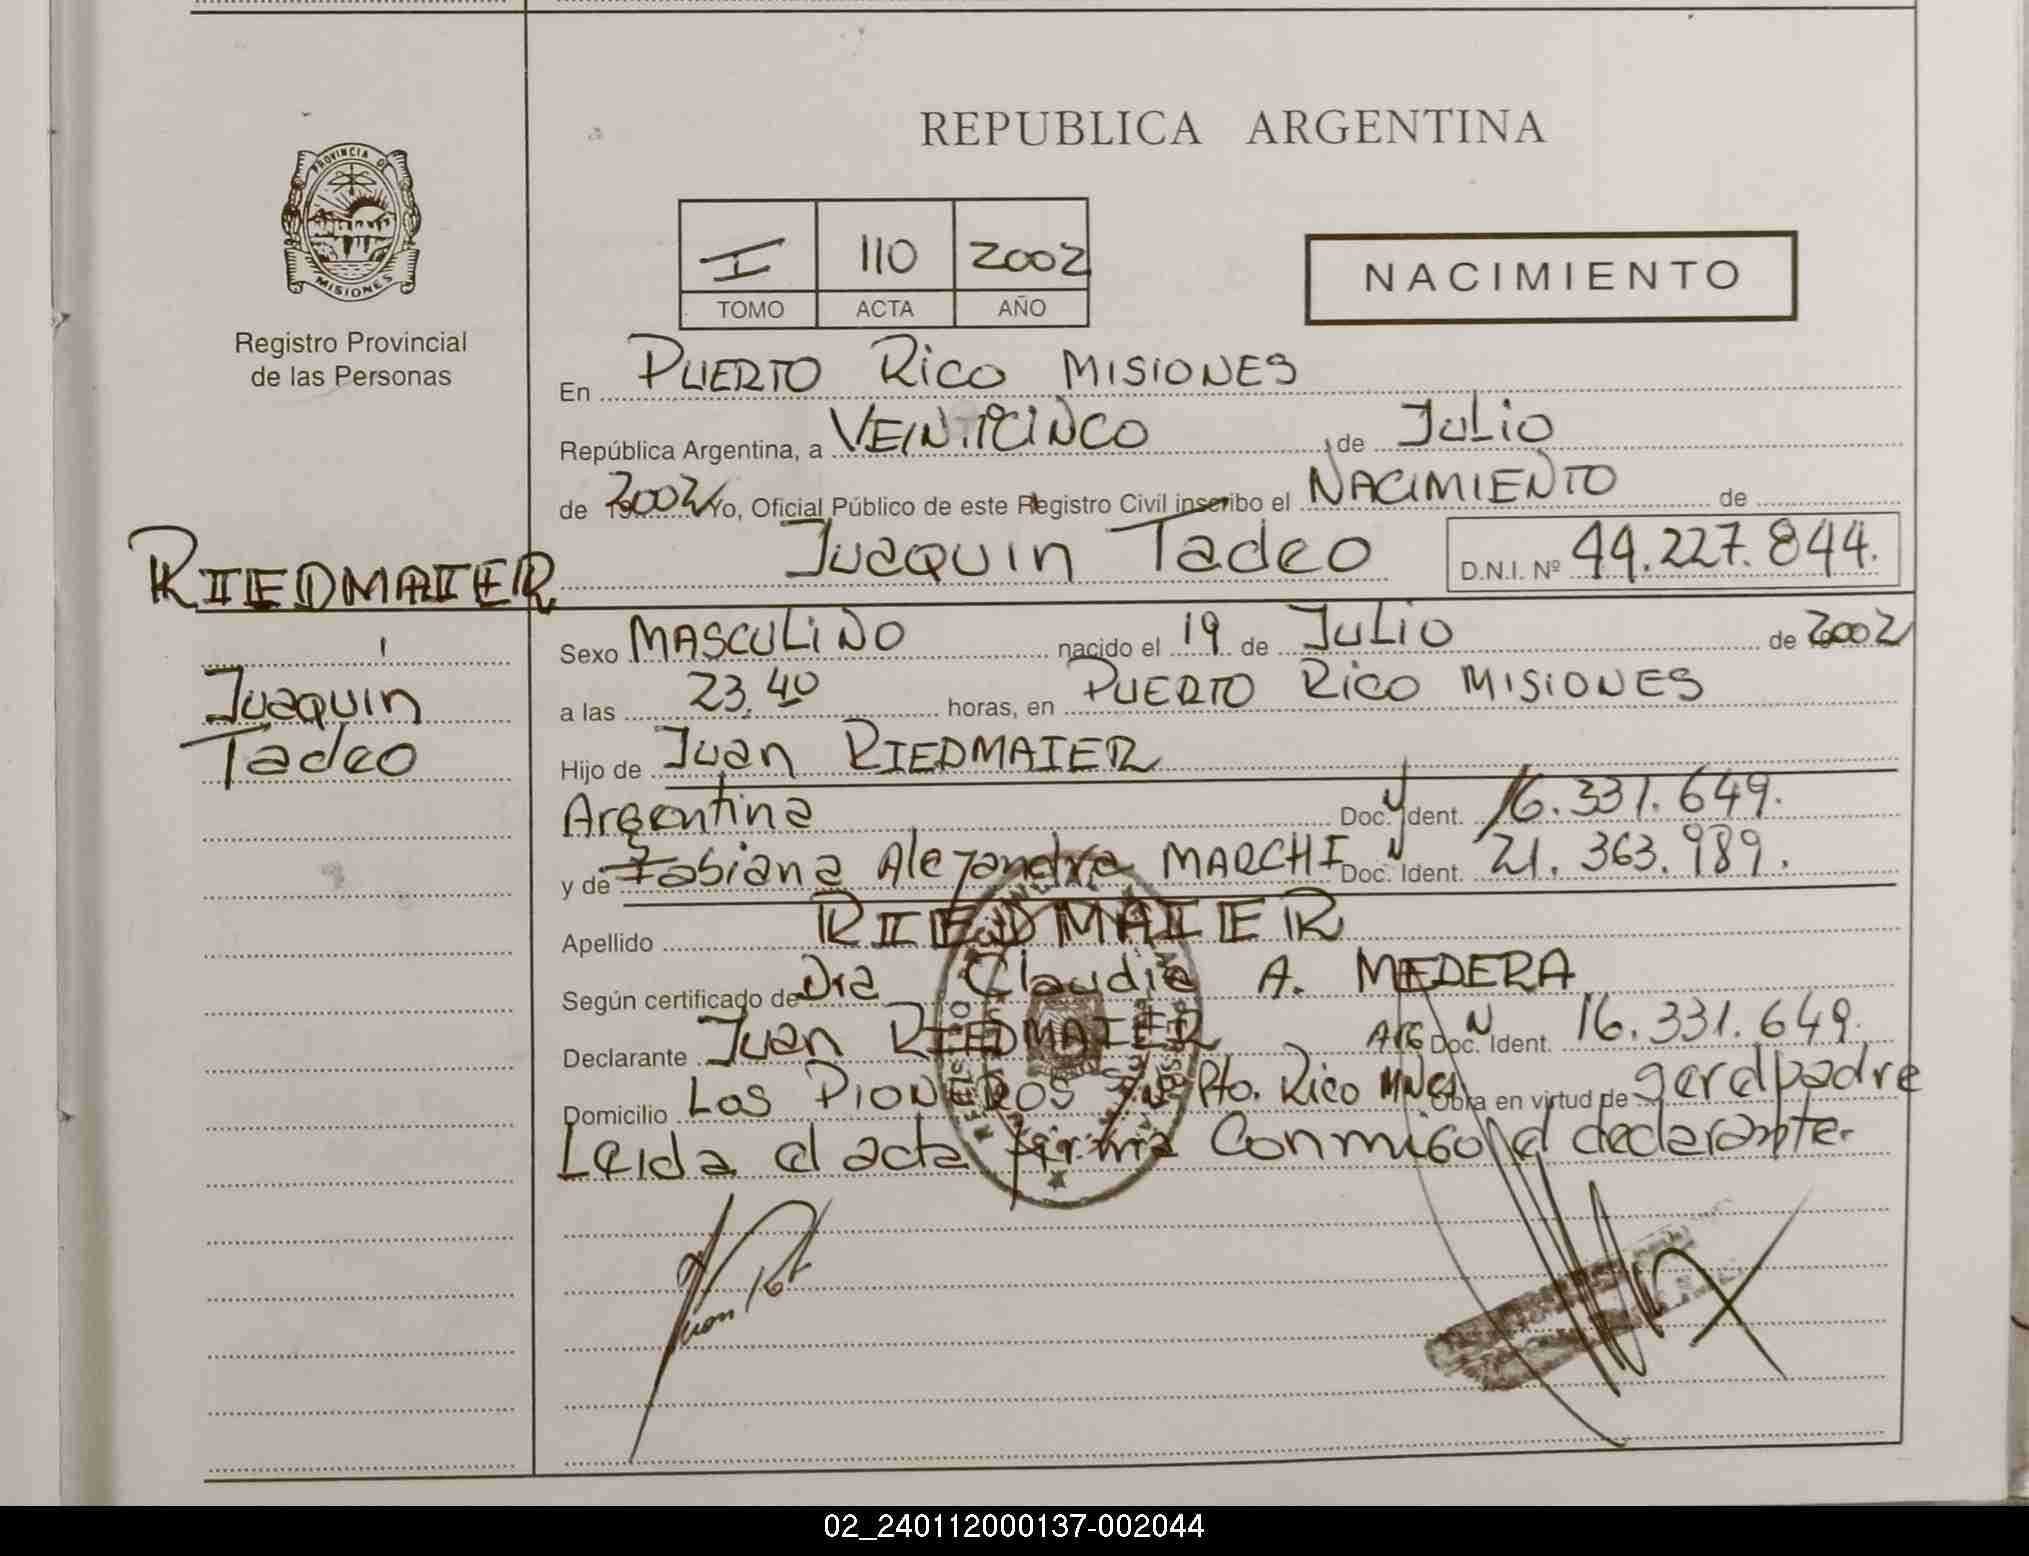 REPUBLICA ARGENTINA
PROVINCIA DE
MISIONES
Registro Provincial
de las Personas
I 110 2002
TOMO ACTA AÑO
NACIMIENTO
En PUERTO Rico MISIONES
República Argentina, a VEINTICINCO de Julio
de 2002 Yo, Oficial Público de este Registro Civil inscribo el NACIMIENTO de
Juaquin Tadeo D.N.I. Nº 44.227.844.
RIEDMAIER
Juaquin
Tadeo
Sexo MASCULINO nacido el 19 de Julio de 2002
a las 23.40 horas, en PUERTO Rico MISIONES
Hijo de Juan RIEDMAIER
Argentina Doc. Ident. 16.331.649.
y de Fabiana Alejandra MARCHI Doc. Ident. 21.363.989.
Apellido RIEDMAIER
Según certificado de Dra Claudia A. MEDERA
Declarante Juan RIEDMAIER ARG Doc. Ident. 16.331.649.
Domicilio Los PIONEROS S/N Pto. Rico MNES Obra en virtud de ser el padre
Leida el acta firma Conmigo el declarante.
02_240112000137-002044